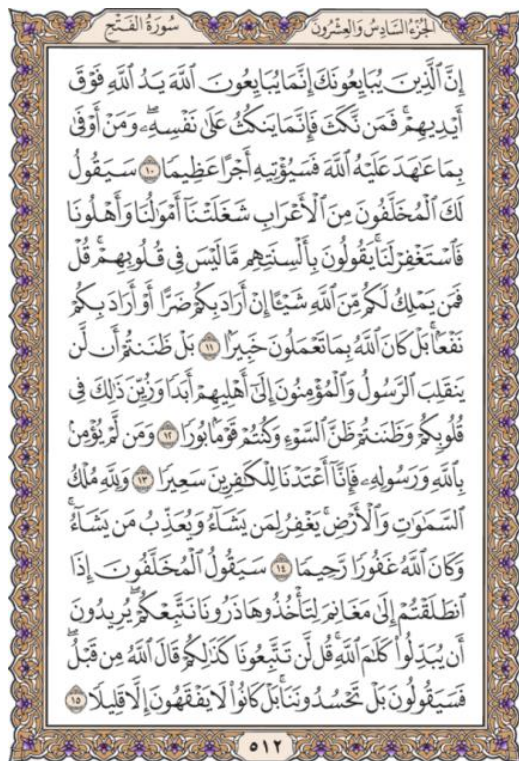 الجُزْءُ السَّادِسُ وَالعِشْرُونَ سُورَةُ الفَتْحِ
إِنَّ ٱلَّذِينَ يُبَايِعُونَكَ إِنَّمَا يُبَايِعُونَ ٱللَّهَ يَدُ ٱللَّهِ فَوْقَ
أَيْدِيهِمْۚ فَمَن نَّكَثَ فَإِنَّمَا يَنكُثُ عَلَىٰ نَفْسِهِۦۖ وَمَنْ أَوْفَىٰ
بِمَا عَٰهَدَ عَلَيْهُ ٱللَّهَ فَسَيُؤْتِيهِ أَجْرًا عَظِيمًا ١٠ سَيَقُولُ
لَكَ ٱلْمُخَلَّفُونَ مِنَ ٱلْأَعْرَابِ شَغَلَتْنَآ أَمْوَٰلُنَا وَأَهْلُونَا
فَٱسْتَغْفِرْ لَنَاۚ يَقُولُونَ بِأَلْسِنَتِهِم مَّا لَيْسَ فِى قُلُوبِهِمْۚ قُلْ
فَمَن يَمْلِكُ لَكُم مِّنَ ٱللَّهِ شَيْـًٔا إِنْ أَرَادَ بِكُمْ ضَرًّا أَوْ أَرَادَ بِكُمْ
نَفْعًۢاۚ بَلْ كَانَ ٱللَّهُ بِمَا تَعْمَلُونَ خَبِيرًۢا ١١ بَلْ ظَنَنتُمْ أَن لَّن
يَنقَلِبَ ٱلرَّسُولُ وَٱلْمُؤْمِنُونَ إِلَىٰٓ أَهْلِيهِمْ أَبَدًا وَزُيِّنَ ذَٰلِكَ فِى
قُلُوبِكُمْ وَظَنَنتُمْ ظَنَّ ٱلسَّوْءِ وَكُنتُمْ قَوْمًۢا بُورًا ١٢ وَمَن لَّمْ يُؤْمِنۢ
بِٱللَّهِ وَرَسُولِهِۦ فَإِنَّآ أَعْتَدْنَا لِلْكَٰفِرِينَ سَعِيرًا ١٣ وَلِلَّهِ مُلْكُ
ٱلسَّمَٰوَٰتِ وَٱلْأَرْضِۚ يَغْفِرُ لِمَن يَشَآءُ وَيُعَذِّبُ مَن يَشَآءُۚ
وَكَانَ ٱللَّهُ غَفُورًا رَّحِيمًا ١٤ سَيَقُولُ ٱلْمُخَلَّفُونَ إِذَا
ٱنطَلَقْتُمْ إِلَىٰ مَغَانِمَ لِتَأْخُذُوهَا ذَرُونَا نَتَّبِعْكُمْۖ يُرِيدُونَ
أَن يُبَدِّلُوا۟ كَلَٰمَ ٱللَّهِۚ قُل لَّن تَتَّبِعُونَا كَذَٰلِكُمْ قَالَ ٱللَّهُ مِن قَبْلُۖ
فَسَيَقُولُونَ بَلْ تَحْسُدُونَنَاۚ بَلْ كَانُوا۟ لَا يَفْقَهُونَ إِلَّا قَلِيلًا ١٥
٥١٢